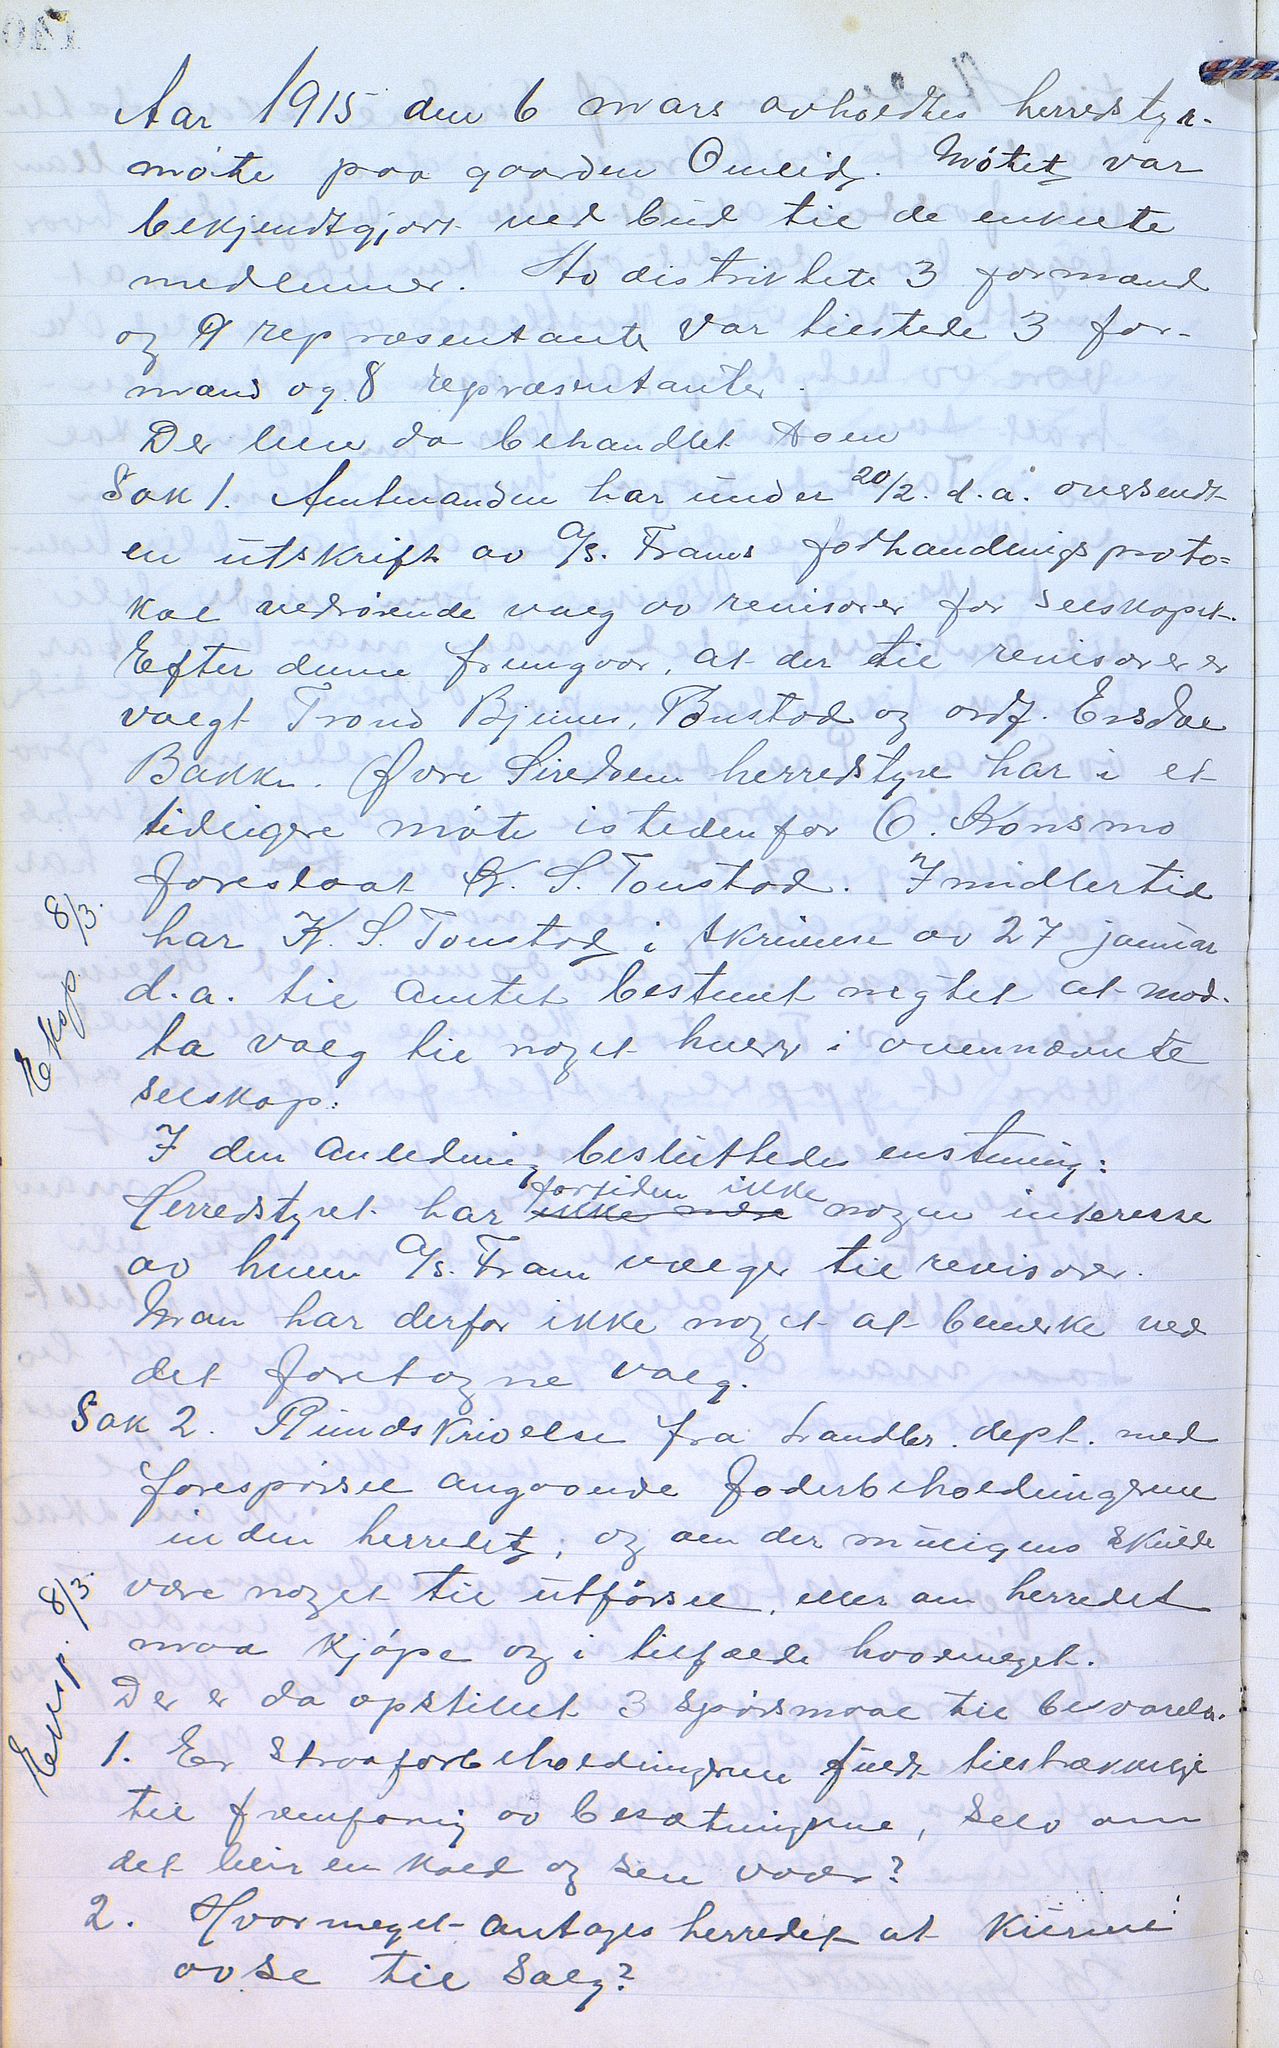 Aar 1915 den 6 mars avholdtes herredstyr-
møte paa gaarden Omlid. Møtet var
bekjendtgjort ved bud til de enkelte
medlemer. Av distriktets 3 formænd
og 9 repræsentanter var tilstede 3 for-
mænd og 8 repræsentanter.
Der blev da behandlet som
Sak 1. Amtmanden har under 20/2. d.a. oversendt
en utskrift av A/S. Frams forhandlingsproto=
kol vedrørende valg av revisorer for selskapet.
Efter denne fremgaar, at der til revisorer er
valgt Trond Bjunes, Bustad og ordf. Ersdal
Bakke. Øvre Siredalen herredstyre har i et
tidligere møte istedenfor O. Konsmo
foreslaat K. S. Tonstad. Imidlertid
har K. S. Tonstad i skrivelse av 27 januar
d.a. til amtet bestemt negtet at mod-
ta valg til noget hverv i ovennævnte
selskap.
Eksp. 8/3.
I den anledning besluttedes enstemig:
Herredstyret har ikke mere fortiden ikke nogen interesse
av hvem A/S. Fram vælger til revisorer.
Man har derfor ikke noget at bemerke ved
det foretagne valg.
Sak 2. Rundskrivelse fra Landbr. dept. med
forespørsel angaaende foderbeholdningerne
inden herredet; og om der muligens skulde
være noget til utførsel, eller om herredet
maa kjøpe og i tilfælde hvormeget.
Eksp. 8/3.
Der er da opstillet 3 spørsmaal til besvarelse.
1. Er straaforbeholdningerne fuldt tilstrækkelige
til fremforing av besætningerne, selv om
det blir en kold og sen vaar?
2. Hvormeget antages herredet at kunne
avse til salg?